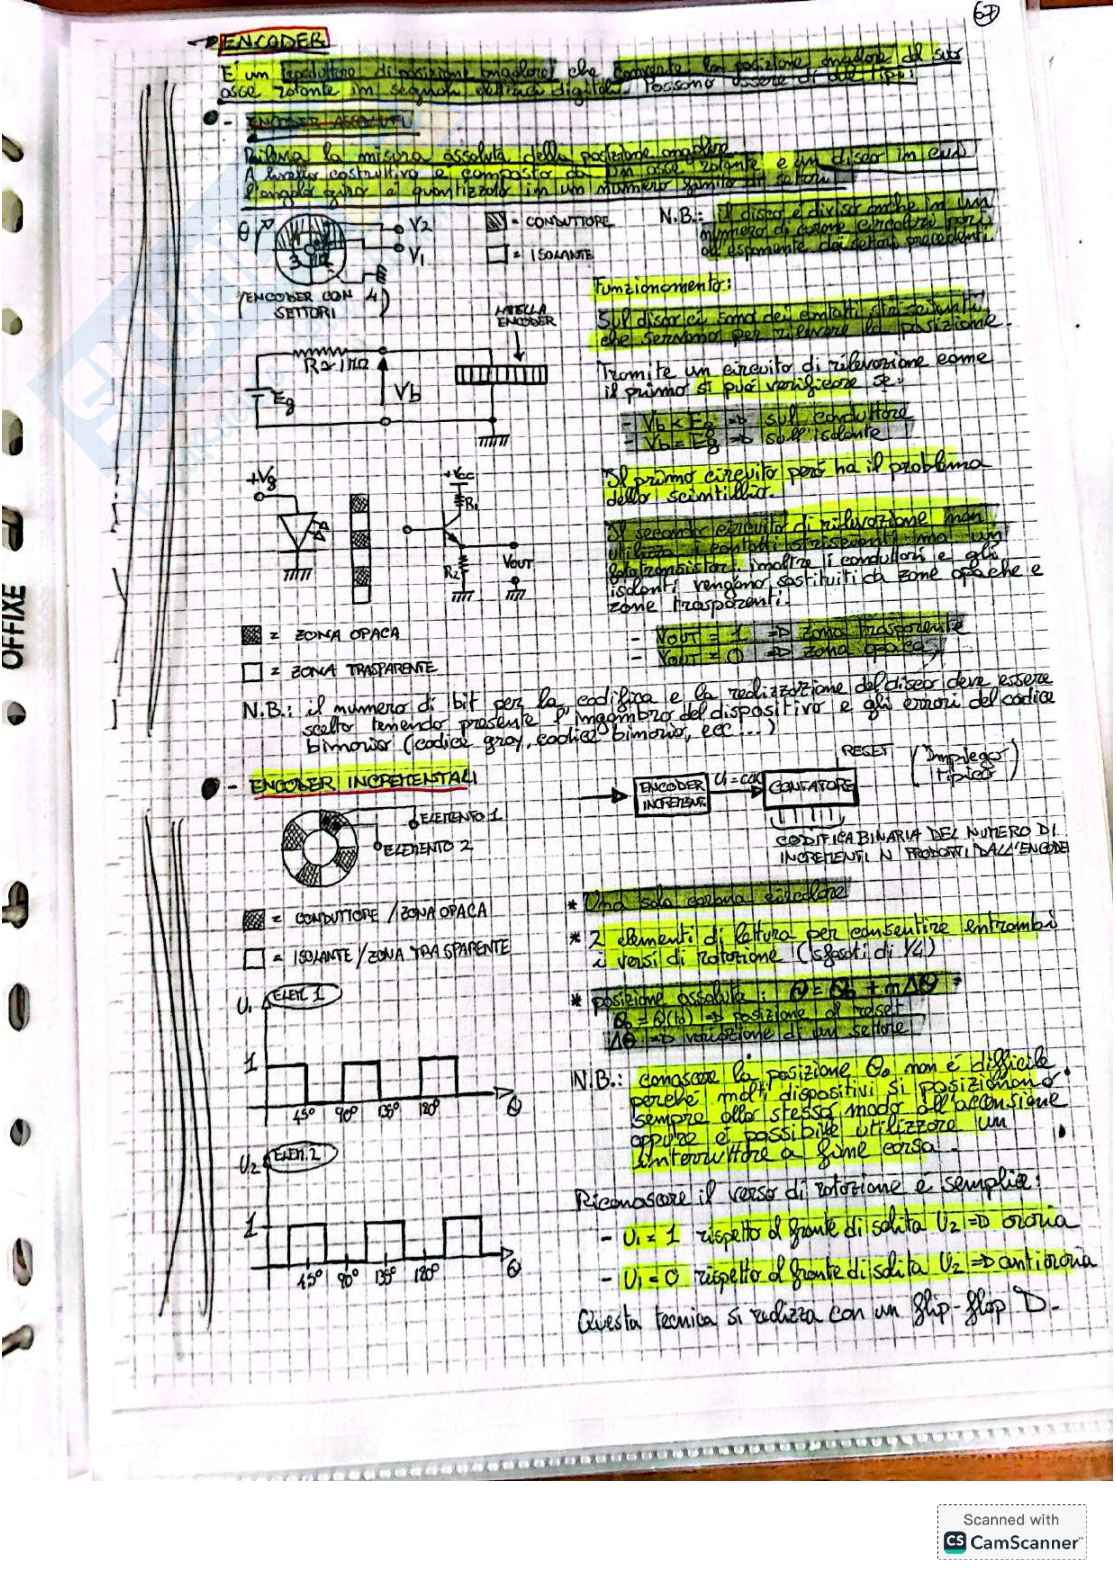 67
ENCODER
E' un trasduttore di posizione angolare che converte la posizione angolare del suo
asse rotante in segnali elettrici digitali. Possono essere di due tipi:
- ENCODER ASSOLUTI
Rileva la misura assoluta della posizione angolare.
A livello costruttivo è composto da un asse rotante e un disco in cui
l'angolo giro è quantizzato in un numero finito di settori
θ
V2
V1
= CONDUTTORE
= ISOLANTE
(ENCODER CON 4)
SETTORI
N.B.: Il disco è diviso anche in un
numero di corone circolari pari
all'esponente dei settori precedenti
Funzionamento:
Sul disco ci sono dei contatti striscianti
che servono per rilevare la posizione.
Tramite un circuito di rilevazione come
il primo si può verificare se:
- Vb < Eg => sul conduttore
- Vb = Eg => sull'isolante
ENCODER
R≃1MΩ
Eg
Vb
Il primo circuito però ha il problema
dello scintillio.
Il secondo circuito di rilevazione non
utilizza i contatti striscianti ma un
fototransistor. inoltre i conduttori e gli
isolanti vengono sostituiti da zone opache e
zone trasparenti.
- VOUT = 1 => zona trasparente
- VOUT = 0 => zona opaca
+Vg
+Vcc
R1
R2
VOUT
= ZONA OPACA
= ZONA TRASPARENTE
N.B.: il numero di bit per la codifica e la realizzazione del disco deve essere
scelto tenendo presente l'ingombro del dispositivo e gli errori del codice
binario (codice gray, codice binario, ecc...)
- ENCODER INCREMENTALI
ENCODER
INCREM.
U1=CLK
CONTATORE
RESET
(Impiego
tipico)
CODIFICA BINARIA DEL NUMERO DI
INCREMENTI N PRODOTTI DALL'ENCODER
ELEMENTO 1
ELEMENTO 2
= CONDUTTORE/ZONA OPACA
= ISOLANTE/ZONA TRASPARENTE
* Una sola corona circolare
* 2 elementi di lettura per consentire entrambi
i versi di rotazione (sfasati di 1/4)
* posizione assoluta: θ = θ0 + nΔθ
θ0 = θ(t0) => posizione al reset
Δθ => variazione di un settore
U1
ELEM. 1
1
45° 90° 135° 180° θ
N.B.: conoscere la posizione θ0 non è difficile
perché molti dispositivi si posizionano
sempre allo stesso modo all'accensione
oppure è possibile utilizzare un
interruttore a fine corsa.
U2
ELEM. 2
1
45° 90° 135° 180° θ
Riconoscere il verso di rotazione è semplice:
- U1 = 1 rispetto al fronte di salita U2 => oraria
- U1 = 0 rispetto al fronte di salita U2 => antioraria
Questa tecnica si realizza con un flip-flop D.
OFFIXE
Scanned with
CS CamScanner